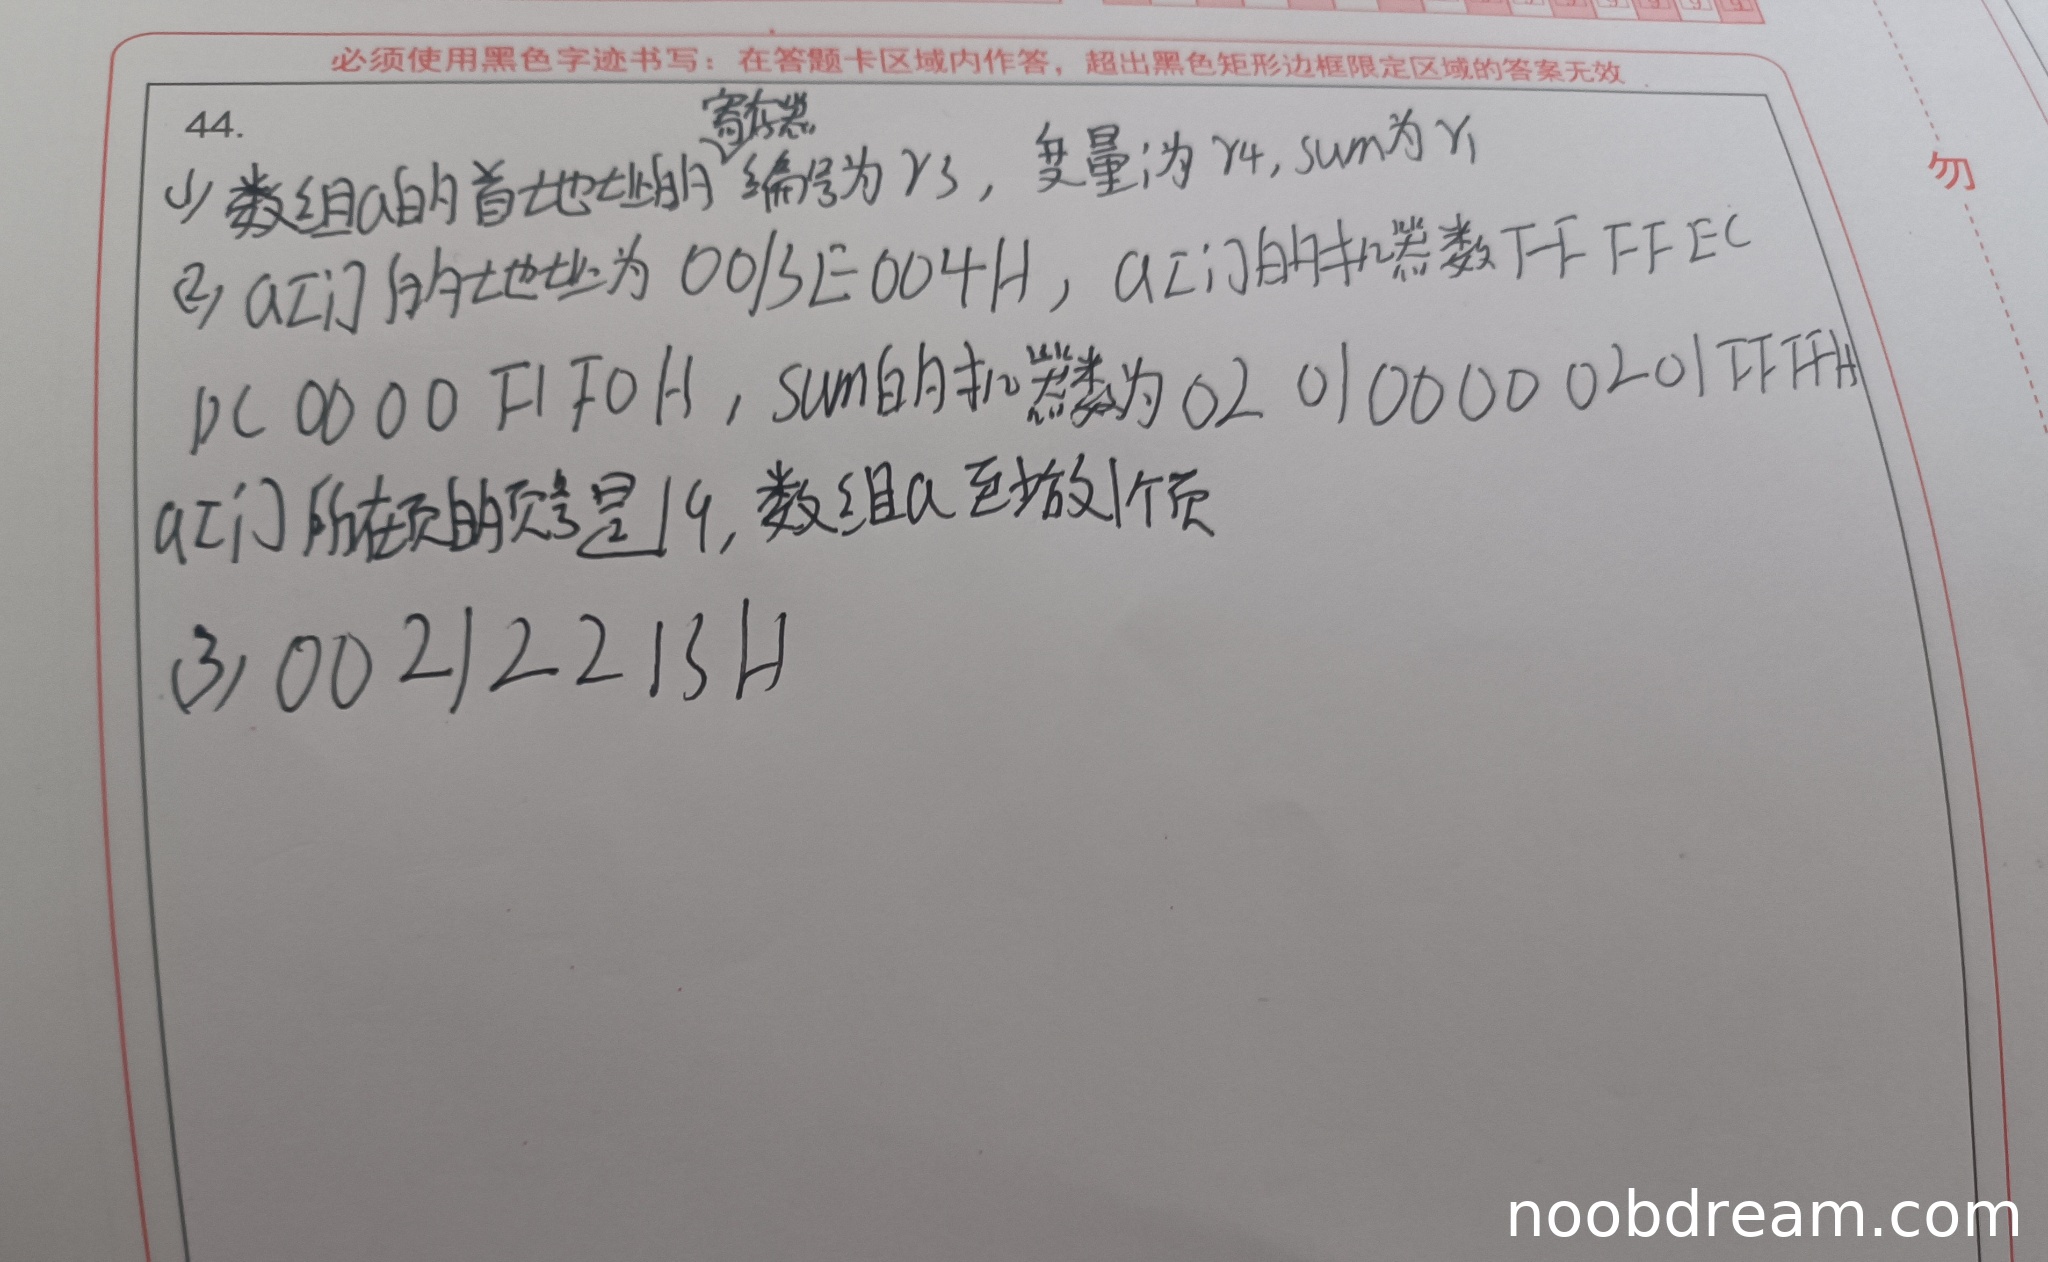 必须使用黑色字迹书写：在答题卡区域内作答，超出黑色矩形边框限定区域的答案无效
勿
44.
寄存器
(1) 数组a的首地址的编号为r3，变量i为r4, sum为r1
(2) a[i]的地址为0013E004H，a[i]的机器数FFFFEC
DC0000F1F0H，sum的机器数为020100000201FFFFH
a[i]所在页的页号是19，数组a至少放1个页
(3) 00212213H
noobdream.com